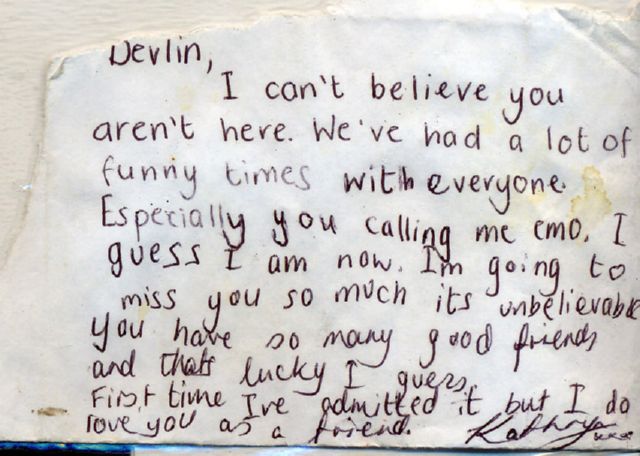 Devlin,
I can't believe you
aren't here. We've had a lot of
funny times with everyone.
Especially you calling me emo. I
guess I am now. I'm going to
miss you so much its unbelievable
you have so many good friends
and thats lucky I guess.
First time I've admitted it but I do
love you as a friend. Kathryn xxx